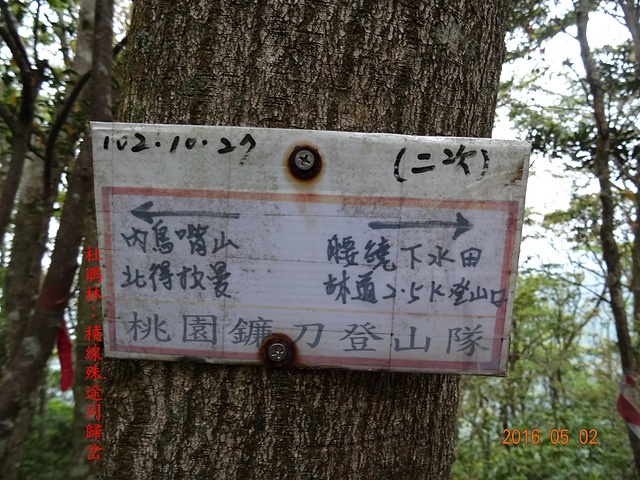 102.10.27 (二次)
內鳥嘴山
北得拉曼
腰繞下水田
林道2.5K登山口
桃園鐮刀登山隊
杜鵑林:稜線殊途同歸岔
2016 05 02